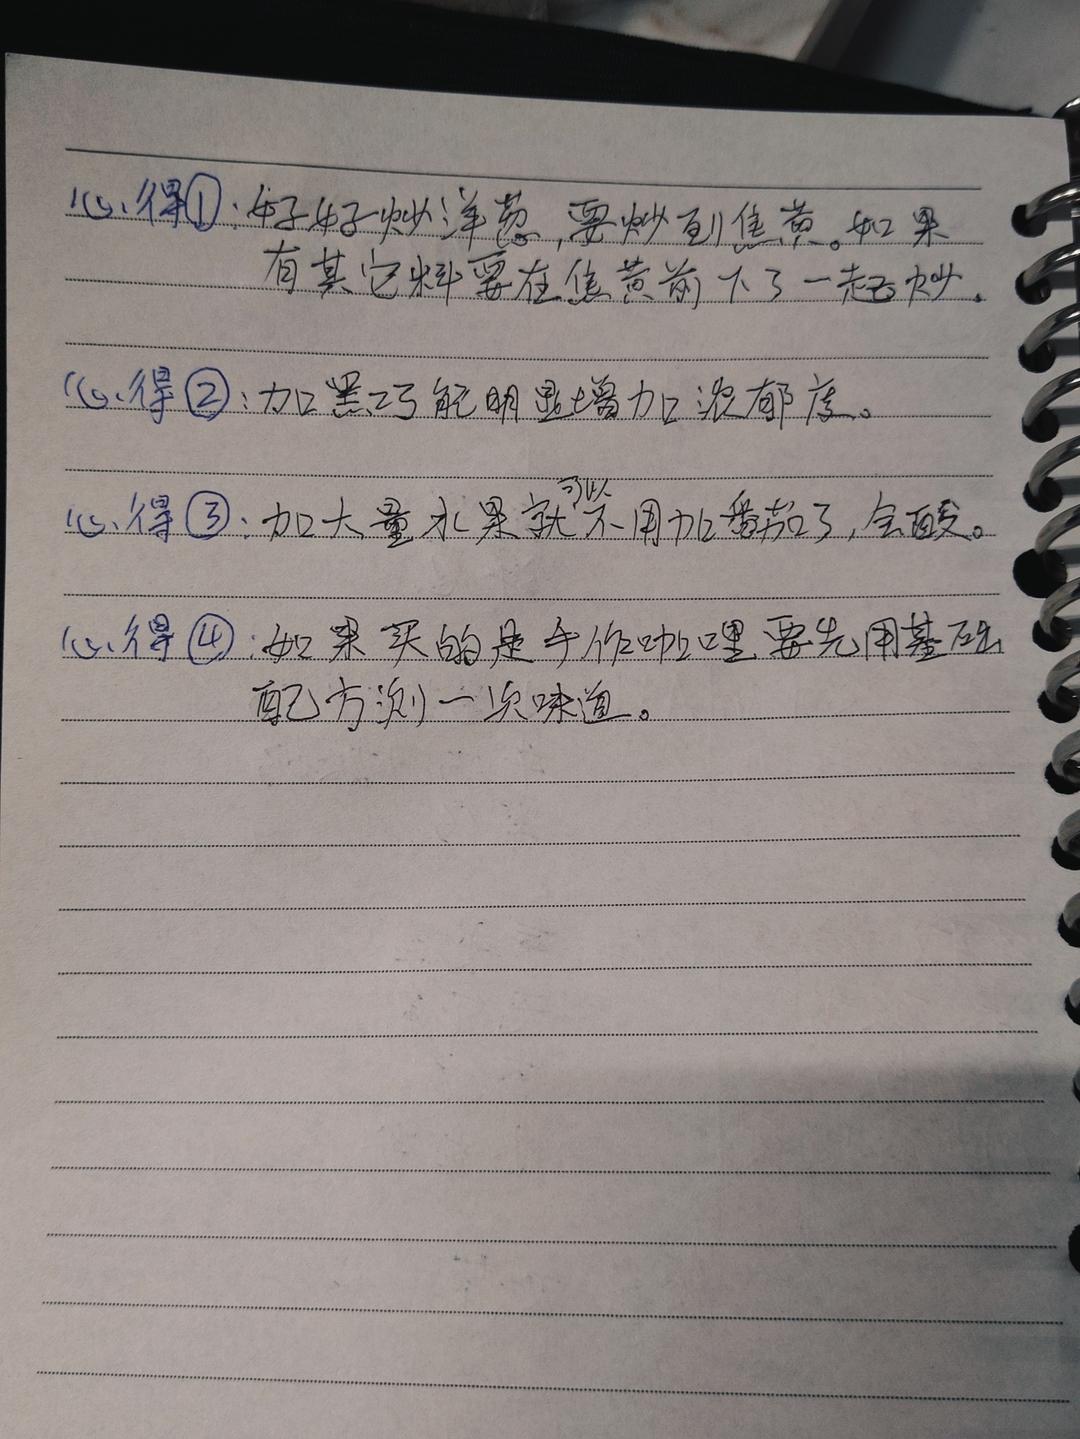 心得①:好好炒洋葱,要炒到焦黄。如果
有其它料要在焦黄前下了一起炒。
心得②:加黑巧能明显增加浓郁度。
心得③:加大量水果就可以不用加番茄了,会酸。
心得④:如果买的是手作咖喱要先用基础
配方测一次味道。